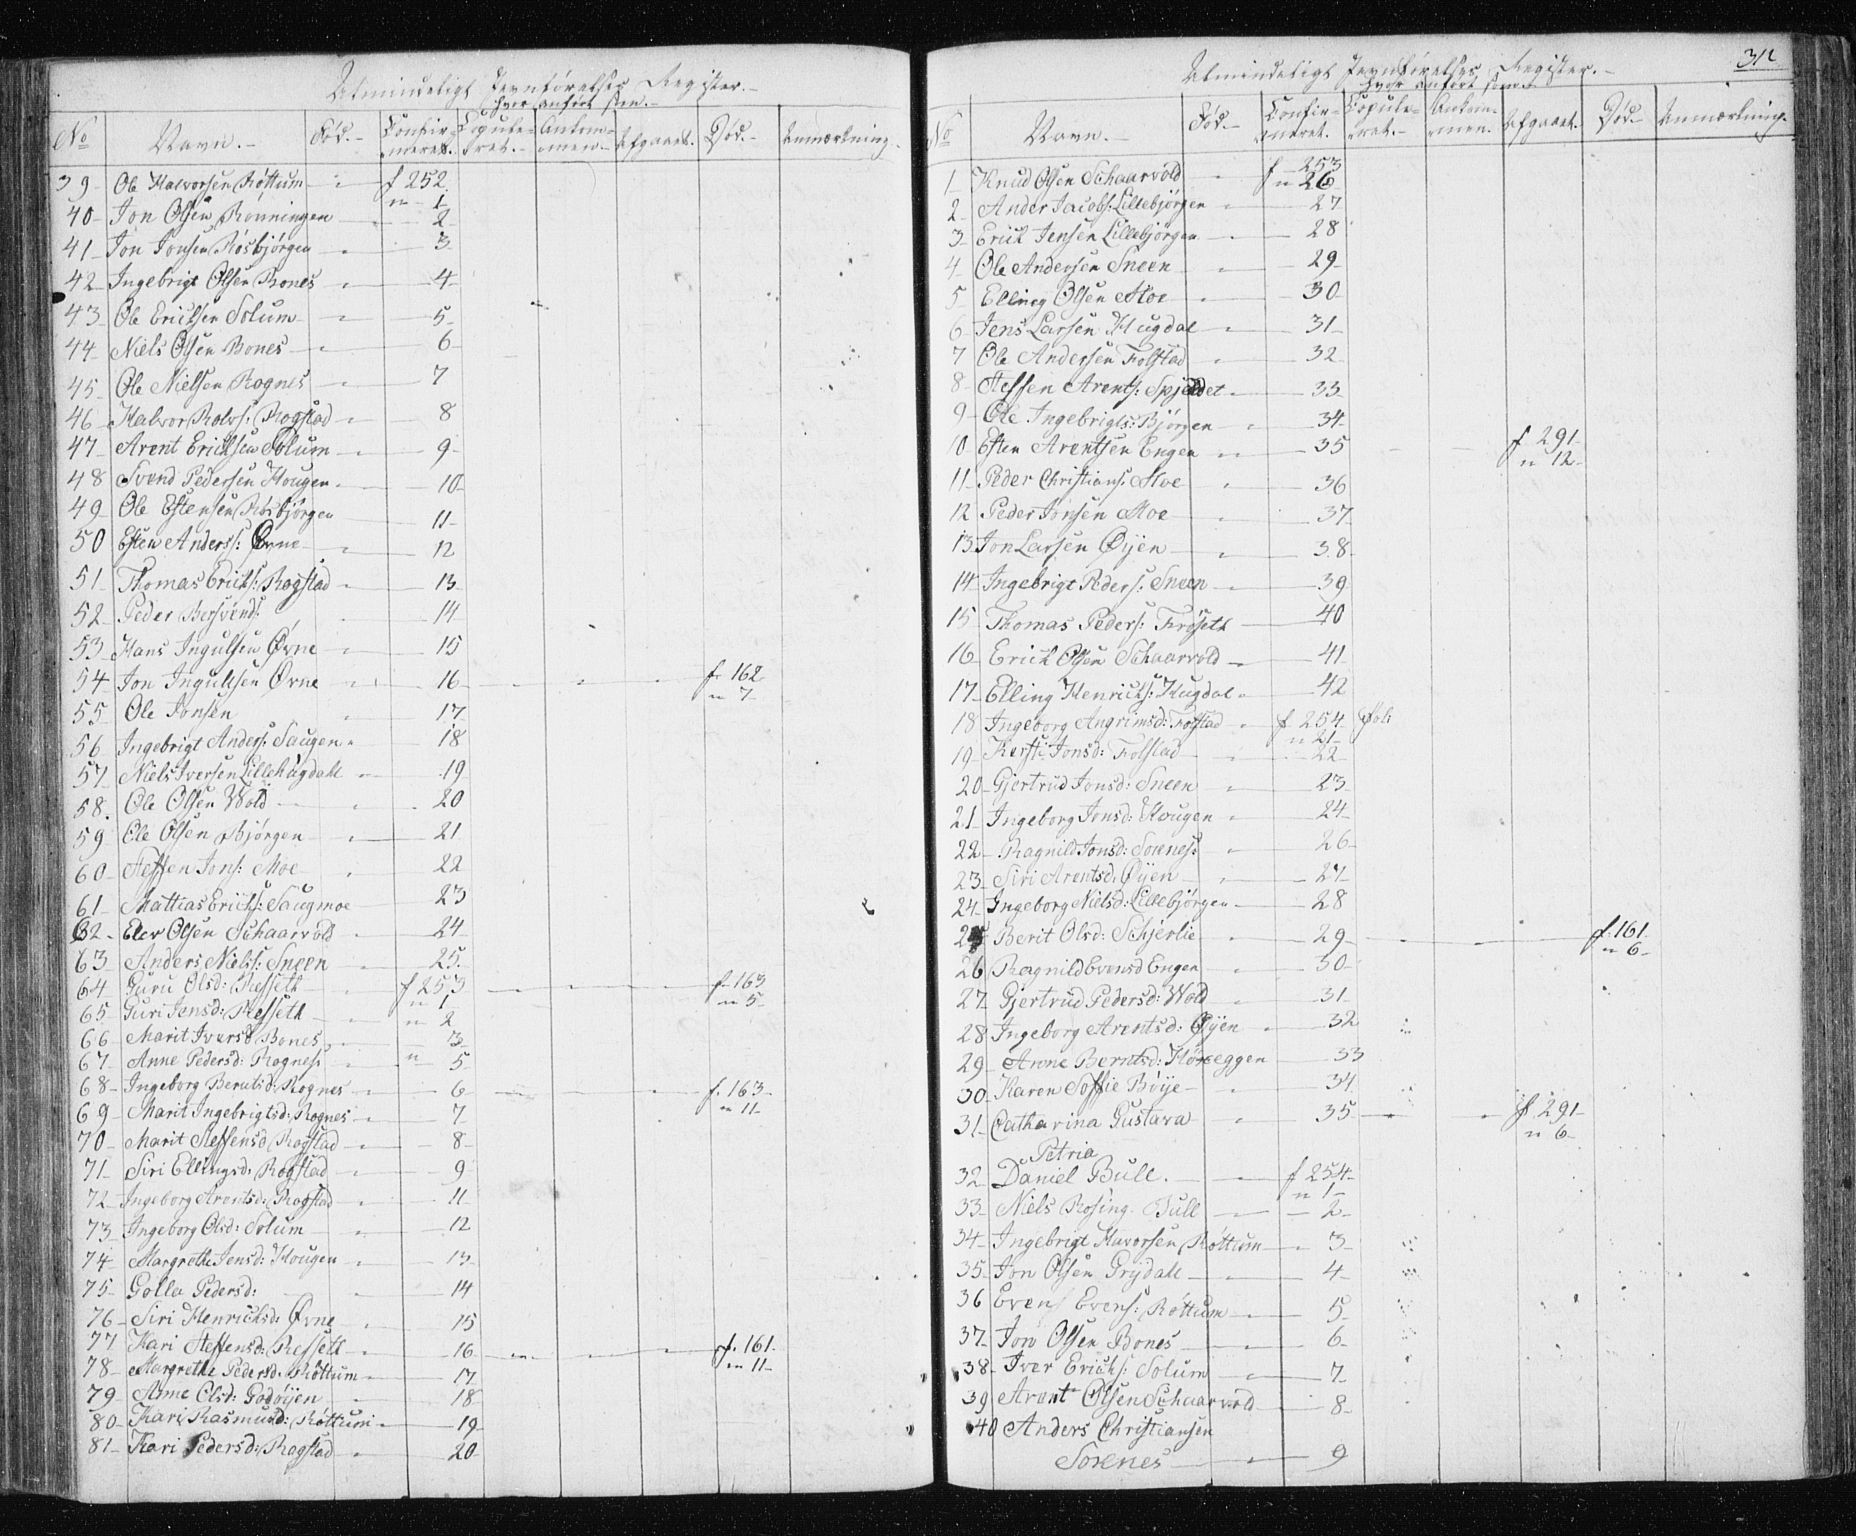 Almindeligt Jevnførelses Register.-
hvor anført som.-
No Navn.- Fød.- Confirmeret. Copuleret.- Ankommen.- Afgaaet. Død.- Anmærkning.
39- Ole Halvorsen Røttum - f 252.
40- Jon Olsen Rønningen - n 1 2
41- Jon Jonsen Røsbjørgen - 3
42- Ingebrigt Olsen Bones - 4-
43- Ole Ericksen Solum - 5-
44- Niels Olsen Bones - 6-
45- Ole Nielsen Rognes - 7
46- Halvor Rolvs: Rogstad - 8
47- Arent Ericksen Solum - 9-
48 Svend Pedersen Hougen - 10-
49- Ole Estensen Røsbjørgen 11-
50 Esten Anders: Øvne - 12
51- Thomas Ericks: Rogstad - 13-
52- Peder Bersvends: - 14
53- Hans Ingulsen Øvne - 15
54- Jon Ingulfsen Øvne - 16- f. 162
n 7-
55 Ole Jonsen - 17-
56- Ingebrigt Anders: Haugen - 18
57- Niels Iversen Lillehugdahl - 19
58. Ole Olsen Wold - 20
59 Ole Olsen Bjørgen - 21
60- Steffen Jons: Moe - 22
61- Mattias Ericks: Haugmoe 23
62- Elev Olsen Schaarvold - 24-
63- Anders Niels: Sneen - 25.
64- Guru Olsd: Resseth - f 253 f- 163
n 1 n 5-
65- Guri Jensd: Resseth - n 2
66- Marit Iversd Bones - 3
67- Anne Pedersd: Rognes: - n 5-
68- Ingeborg Berntsd: Rognes - 6- f. 163-
n 11-
69- Marit Ingebrigtsd: Rognes - 7-
70- Marit Steffensd Rogstad - 8-
71- Siri Ellingsd: Rogstad - 9
72- Ingeborg Arentsd: Rogstad - 11
73- Ingeborg Olsd: Solum - 12
74- Margrethe Jensd: Hougen - 13-
75- Golla Pedersd: - 14
76- Siri Henricksd: Øvne - 15
77 Kari Steffensd: Resseth - 16- f. 161.
n 11-
78- Margrethe Pedersd: Røttum - 17-
79- Anne Olsd: Godøyen - 18-
80- Kari Rasmusd: Røttum - 19-
81- Kari Pedersd: Rogstad - 20-
312
Almindeligt Jevnførelses Register.-
hvor anført som.-
No Navn.- Fød.- Confirmeret. Copuleret.- Ankommen. Afgaaet. Død.- Anmærkning.
1- Knud Olsen Schaarvold - f 253
n 26
2- Ander Jacobs: Lillebjørgen - 27
3- Erick Jensen Lillebjørgen - 28
4- Ole Andersen Sneen - 29
5 Elling Olsen Moe - 30
6- Jens Larsen Hugdal - 31-
7 Ole Andersen Folstad - 32
8- Steffen Arents: Spjeldet - 33
9- Ole Ingebrigts: Bjørgen - 34-
10- Esten Arentsen Engen - 35 f 291-
n 12-
11- Peder Christians: Moe - 36
12 Peder Jonsen Moe - 37-
13. Jon Larsen Øyen - 38-
14- Ingebrigt Peders: Sneen - 39
15- Thomas Peders: Frøseth - 40
16- Erick Olsen Schaarvold - 41
17- Elling Henricks: Hugdal - 42
18 Ingeborg Angrimsd: Folstad - f 254
n 21-
19- Kersti Jonsd: Folstad - 22-
20- Gjertrud Jonsd: Sneen - 23-
21- Ingeborg Jonsd: Hougen - 24-
22- Ragnild Jonsd: Sorenes: - 26-
23- Siri Arentsd: Øyen - 27-
24- Ingeborg Nielsd: Lillebjørgen - 28
25 Berit Olsd: Schjerlie - 29- f. 161-
n 6-
26 Ragnild Evensd Engen - 30-
27- Gjertrud Pedersd: Wold - 31-
28 Ingeborg Arentsd: Øyen - 32
29- Anne Berntsd: Høneggen 33
30- Karen Soffie Bøye - 34
31- Catharina Gustava 35- f 291-
n 6-
Petria
32- Daniel Bull. - f 254-
n 1-
33- Niels Rosing Bull - 2-
34- Ingebrigt Havorsen Røttum - 3-
35- Jon Olsen Grydahl - 4-
36 Even Evens: Røttum - 5-
37- Jon Olsen Bones - 6-
38- Iver Ericks: Solum - 7-
39 Arent Olsen Schaarvold - 8-
40 Anders Christiansen
Sorenes - 9